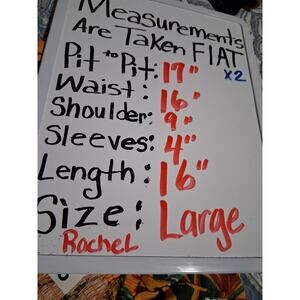 Measurements
Are Taken FlAT
Pit to Pit: 17" x2
Waist: 16"
Shoulder: 9"
Sleeves: 4"
Length: 16"
Size: Large
Rachel